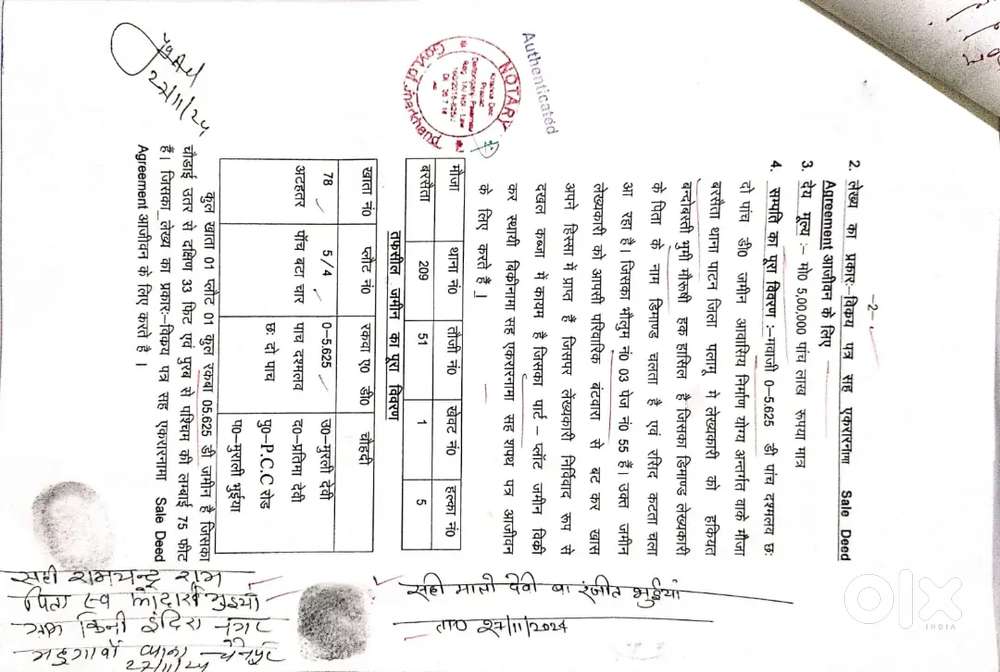 -2-
2. लेख्य का प्रकार:-विकय पत्र सह एकरारनामा Sale Deed
Agreement आजीवन के लिए
3. देय मूल्य :- मो0 5,00,000 पांच लाख रूपया मात्र
4. सम्पति का पूरा विवरण :-मवाजी 0-5.625 डी पांच दशमलय छः
दो पांच डी0 जमीन आवासिय निर्माण योग्य अन्तर्गत वाके मौजा
बरसैता थाना पाटन जिला पलामू मे लेख्यकारी को हकियत
बन्दोबस्ती भुमी मौरूषी हक हासिल है जिसका डिमाण्ड लेख्यकारी
के पिता के नाम डिमाण्ड चलता है एवं रसिद कटता चला
आ रहा है। जिसका भौलुम नं0 03 पेज नं0 55 है। उक्त जमीन
लेख्यकारी को आपसी परिवारिक बंटवारा से बट कर खास
अपने हिस्सा में प्राप्त है जिसपर लेंख्यकारी निर्विवाद रूप से
दखल कब्जा में कायम है जिसका पार्ट - प्लॉट जमीन विकी
कर स्थायी बिकीनामा सह एकरारनामा सह शपथ पत्र आजीवन
के लिए करते है।
मौजा थाना नं0 तौजी नं0 खेवट नं0 हल्का नं0
बरसैता 209 51 1 5
तफसील जमीन का पूरा विवरण
खाता नं0 प्लौट नं0 रकवा ए0 डी0 चौहदी
78 5/4 0-5.625 उ0-मुरली देवी
अटहतर पॉच बटा चार पाच दशमलय द0-प्रतिमा देवी
छः दो पाच पु0-P.C.C रोड
प0-मुराली भुईया
कुल खाता 01 प्लौट 01 कुल रकबा 05.625 डी जमीन है जिसका
चौडाई उतर से दक्षिण 33 फिट एवं पुरब से पश्चिम की लम्बाई 75 फीट
है। जिसका लेख्य का प्रकार:-विकय पत्र सह एकरारनामा Sale Deed
Agreement आजीवन के लिए करते है ।
Authenticated
NOTARY
Govt. of Jharkhand
27/11/24
सही मालो देवी वा रंजीत भुईयां
ता0 27/11/2024
सही रामचन्द्र राम
पिता स्व भुइयां
इंदिरा नगर
थाना चैनपुर
27/11/24
OLX
INDIA